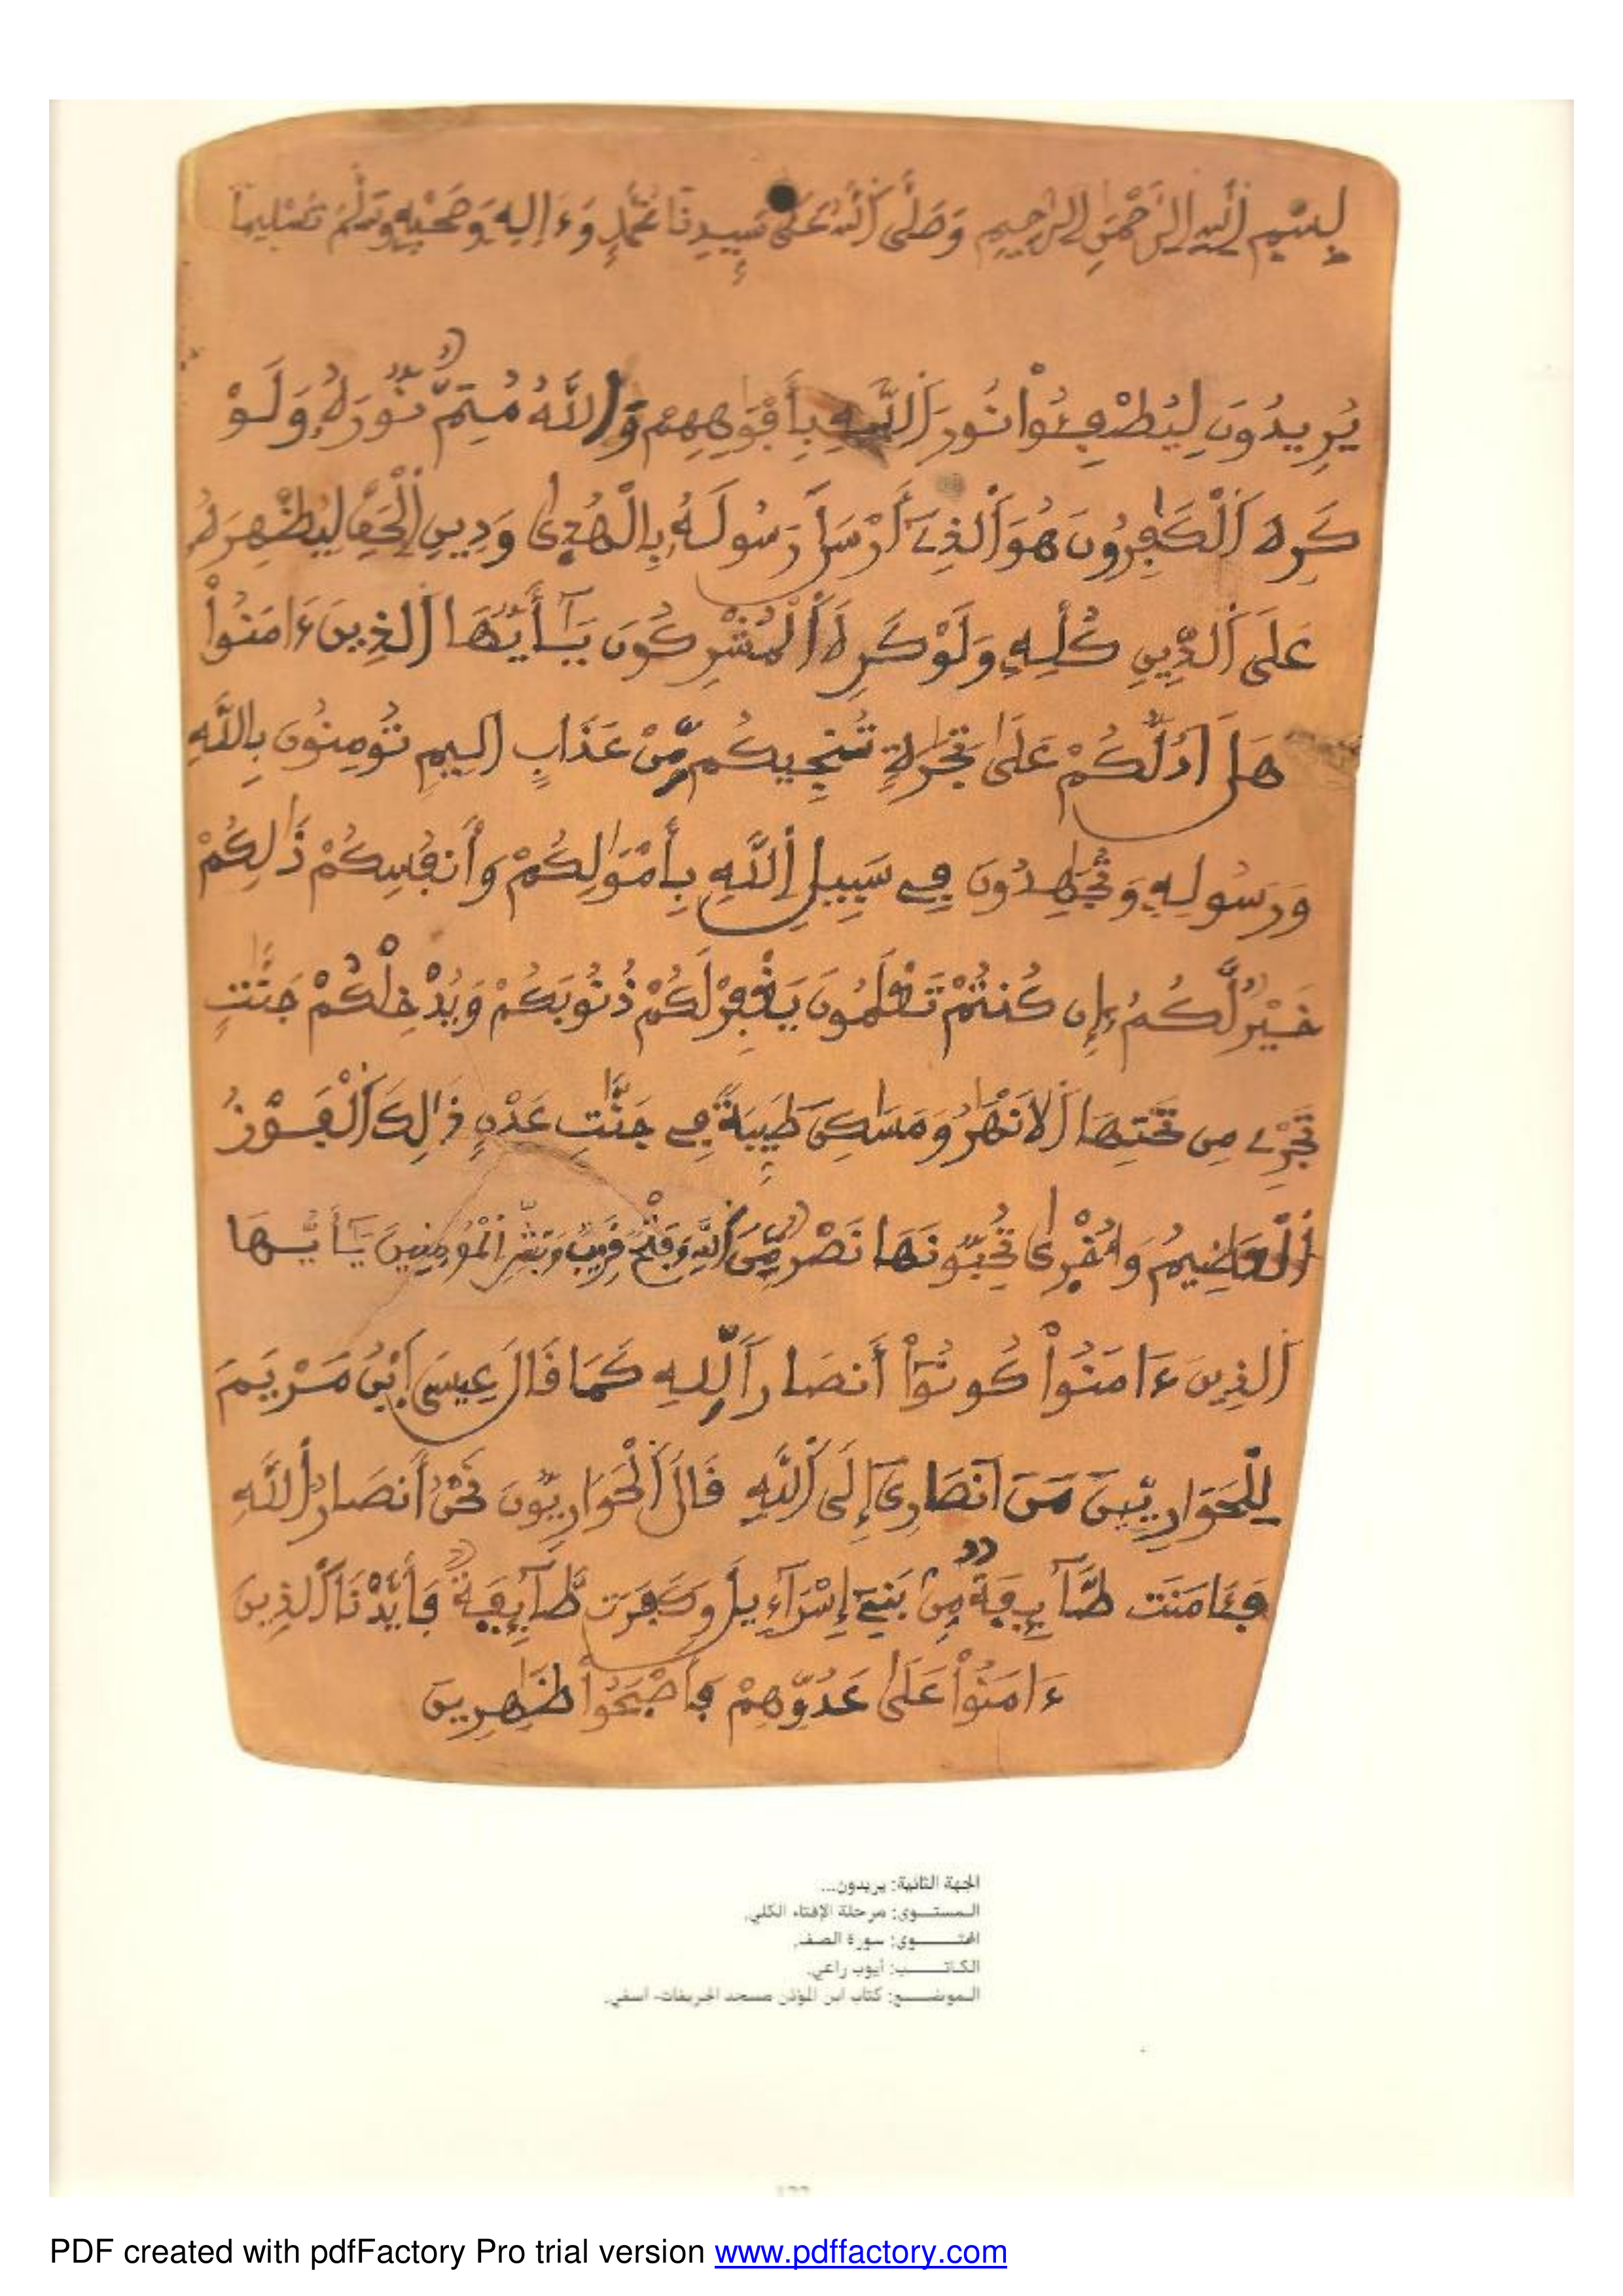 بِسْمِ اِ۬للَّهِ اِ۬لرَّحْمَٰنِ اِ۬لرَّحِيمِ وَصَلَّى اَ۬للَّهُ عَلَىٰ سَيِّدِنَا مُحَمَّدٍ وَءَالِهِ وَصَحْبِهِ وَسَلَّمَ تَسْلِيماً
يُرِيدُونَ لِيُطْفِـُٔواْ نُورَ اَ۬للَّهِ بِأَفْوَٰهِهِمْ وَاللَّهُ مُتِمٌّ نُورَهُۥ وَلَوْ
كَرِهَ اَ۬لْكَٰفِرُونَ هُوَ اَ۬لذِےٓ أَرْسَلَ رَسُولَهُۥ بِالْهُدۭىٰ وَدِينِ اِ۬لْحَقِّ لِيُظْهِرَهُۥ
عَلَى اَ۬لدِّينِ كُلِّهِۦ وَلَوْ كَرِهَ اَ۬لْمُشْرِكُونَ يَـٰٓأَيُّهَا اَ۬لذِينَ ءَامَنُواْ
هَلَ اَدُلُّكُمْ عَلَىٰ تِجَٰرَةٍ تُنجِيكُم مِّنْ عَذَابٍ اَلِيمٍ تُومِنُونَ بِاللَّهِ
وَرَسُولِهِۦ وَتُجَٰهِدُونَ فِے سَبِيلِ اِ۬للَّهِ بِأَمْوَٰلِكُمْ وَأَنفُسِكُمْ ذَٰلِكُمْ
خَيْرٌ لَّكُمُۥٓ إِن كُنتُمْ تَعْلَمُونَ يَغْفِرْ لَكُمْ ذُنُوبَكُمْ وَيُدْخِلْكُمْ جَنَّٰتٍ
تَجْرِے مِن تَحْتِهَا اَ۬لَانْهَٰرُ وَمَسَٰكِنَ طَيِّبَةً فِے جَنَّٰتِ عَدْنٍ ذَٰلِكَ اَ۬لْفَوْزُ
اُ۬لْعَظِيمُ وَأُخْرۭىٰ تُحِبُّونَهَا نَصْرٌ مِّنَ اَ۬للَّهِ وَفَتْحٌ قَرِيبٌ وَبَشِّرِ اِ۬لْمُومِنِينَ يَـٰٓأَيُّهَا
اَ۬لذِينَ ءَامَنُواْ كُونُوٓاْ أَنصَاراً لِّلهِ كَمَا قَالَ عِيسَى اَ۪بْنُ مَرْيَمَ
لِلْحَوَارِيِّـۧنَ مَنَ اَنصَارِيَ إِلَى اَ۬للَّهِ قَالَ اَ۬لْحَوَارِيُّونَ نَحْنُ أَنصَارُ اُ۬للَّهِ
فَـَٔامَنَت طَّآئِفَةٌ مِّنۢ بَنِےٓ إِسْرَآءِيلَ وَكَفَرَت طَّآئِفَةٌ فَأَيَّدْنَا اَ۬لذِينَ
ءَامَنُواْ عَلَىٰ عَدُوِّهِمْ فَأَصْبَحُواْ ظَٰهِرِينَ
الجهة الثانية: يريدون...
المستوى: مرحلة الإفتاء الكلي.
المحتوى: سورة الصف.
الكاتب: أيوب راعي.
الموضع: كتاب ابن المؤذن مسجد الجريفات- اسفي.
PDF created with pdfFactory Pro trial version www.pdffactory.com